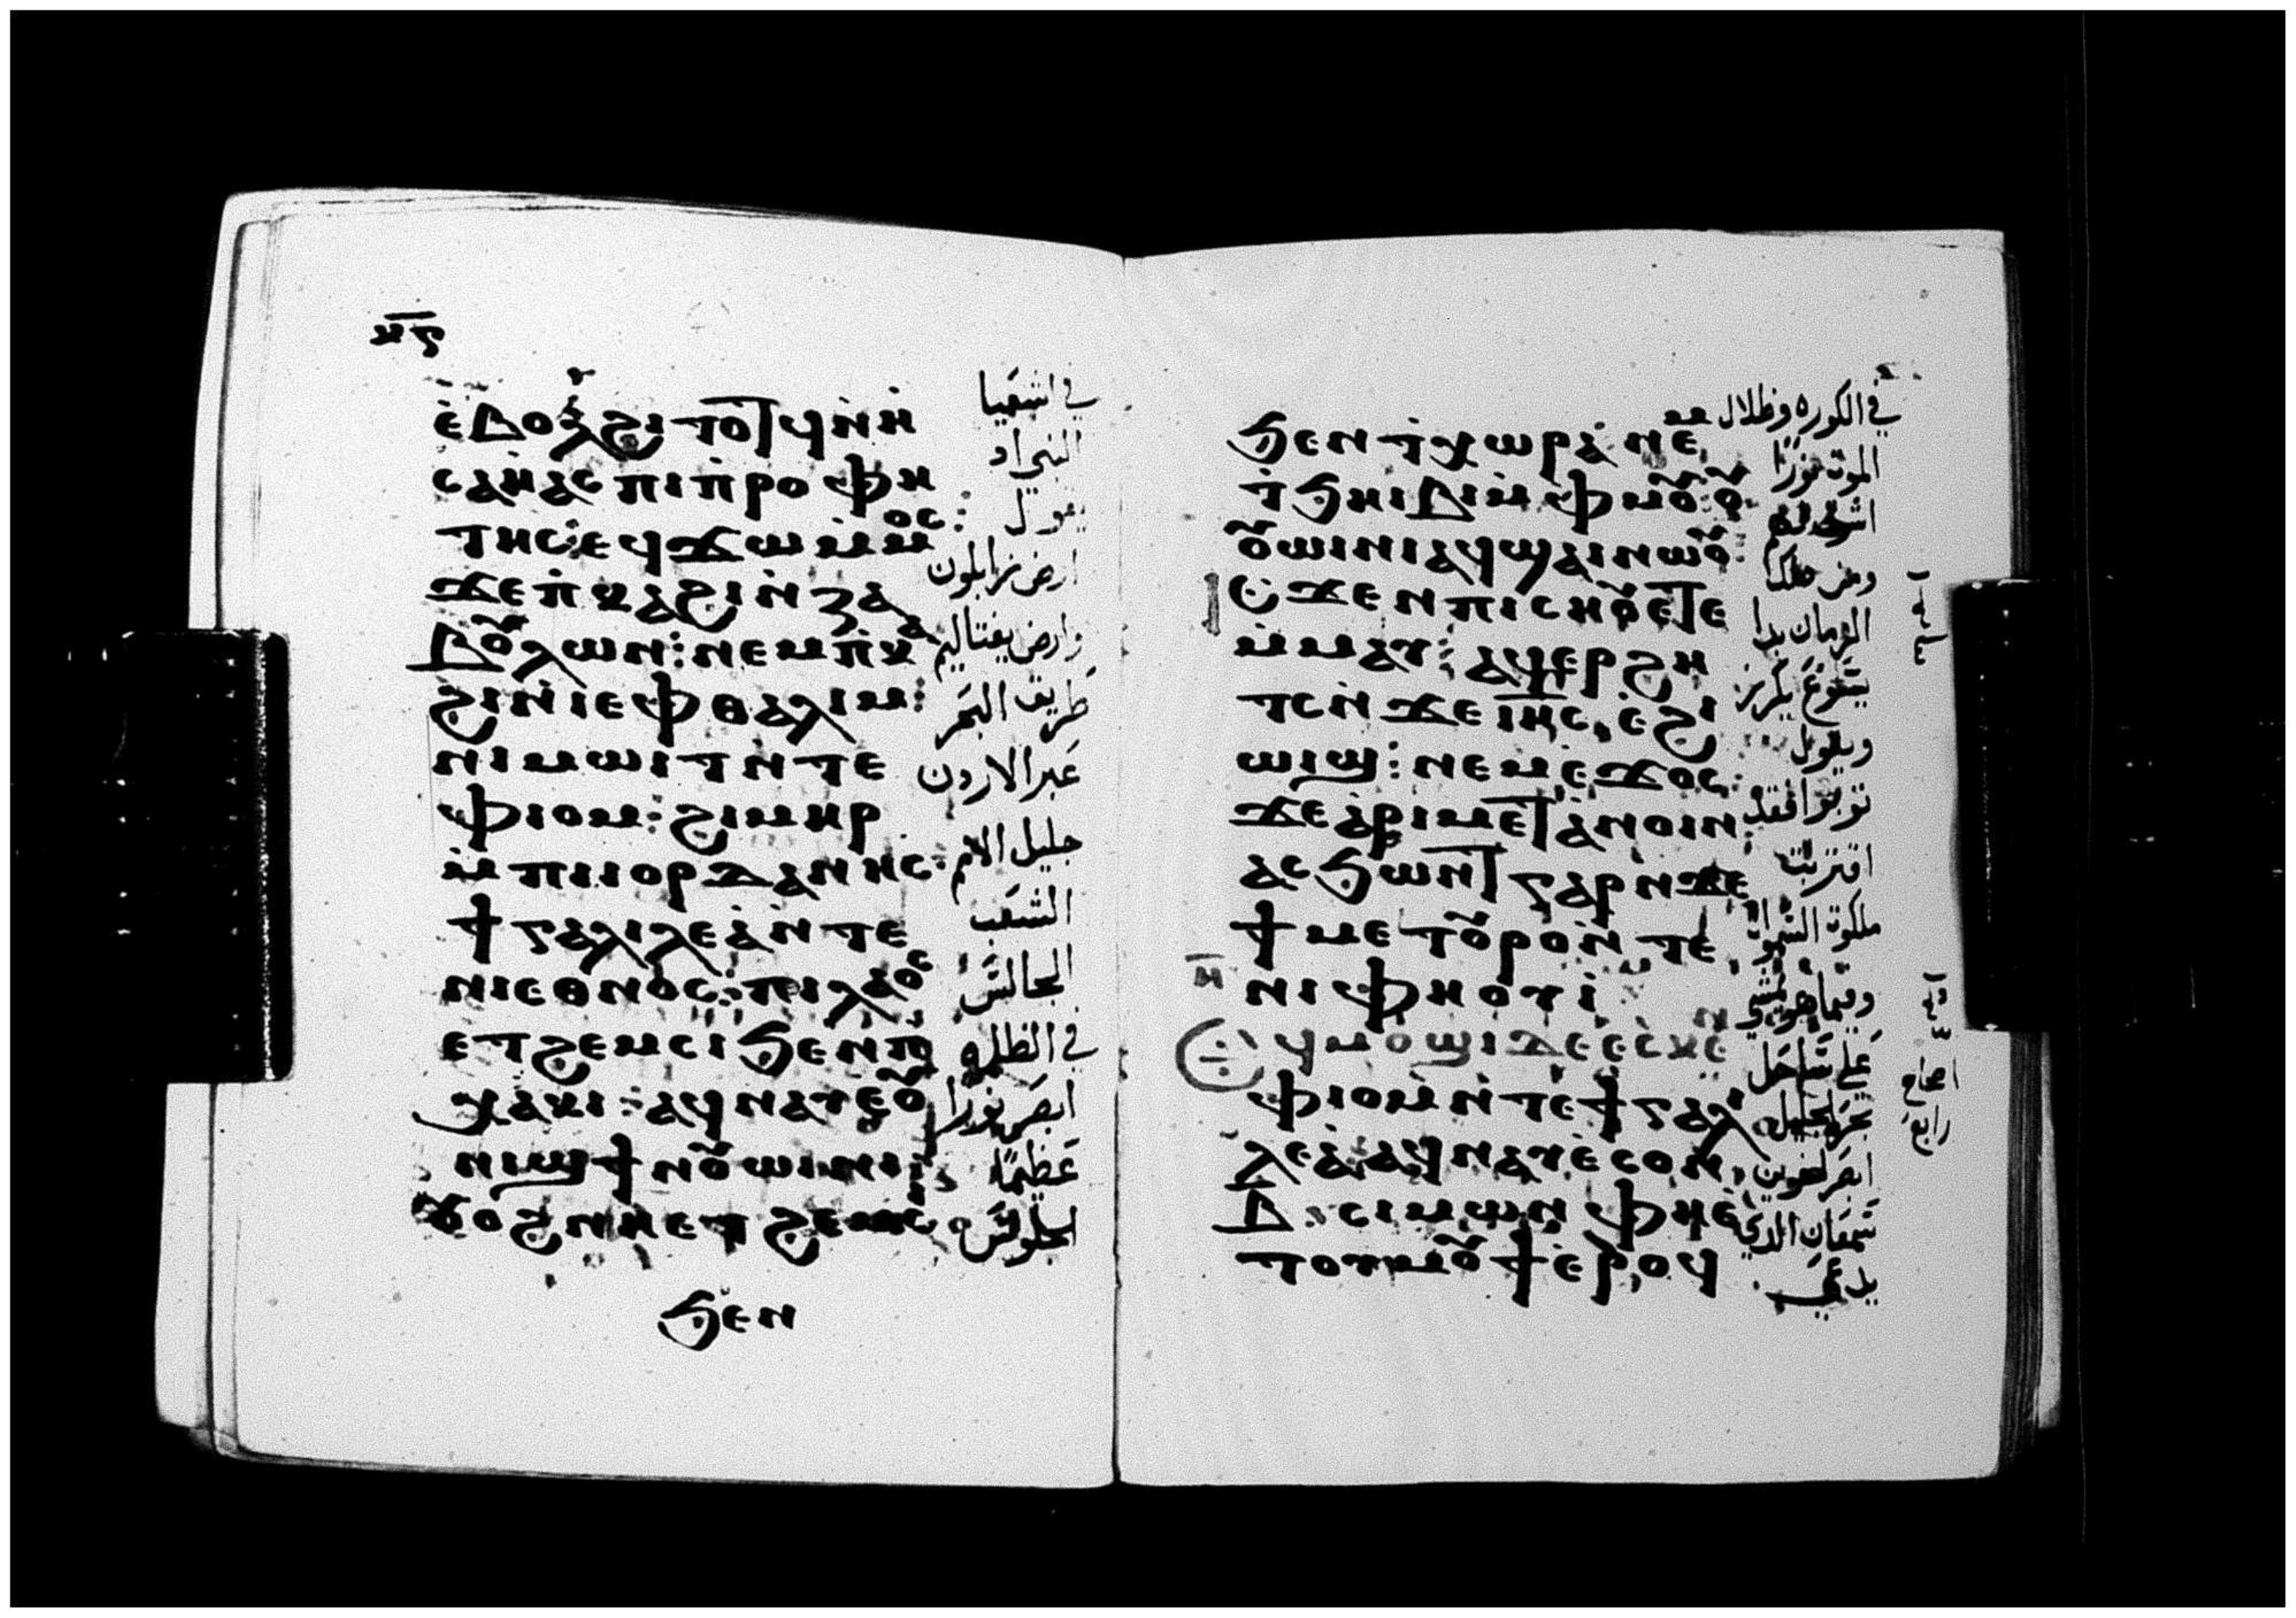 ⲏ̅ⲋ̅
ⲉ̀ⲃⲟⲗϩⲓⲧⲟⲧϥⲛ̀ⲏ̀
ⲥⲁⲏ̀ⲁⲥⲡⲓⲡ̀ⲣⲟⲫⲏ
ⲧⲏⲥ:ⲉϥϫⲱⲙ̀ⲙⲟⲥ:
ϫⲉⲡ̀ⲕⲁϩⲓⲛ̀ⲍⲁ
ⲃⲟⲩⲗⲱⲛ:ⲛⲉⲙⲡ̀ⲕⲁ
ϩⲓⲛ̀ⲓⲉⲫⲑⲁⲗⲓⲙ:
ⲛⲓⲙⲱⲓⲧⲛ̀ⲧⲉ
ⲫⲓⲟⲙ:ϩⲓⲙⲏⲣ
ⲙ̀ⲡⲓⲓⲟⲣⲇⲁⲛⲏⲥ:
ϯⲅⲁⲗⲓⲗⲉⲁ̀ⲛ̀ⲧⲉ
ⲛⲓⲉⲑⲛⲟⲥ:ⲡⲓⲗⲁⲟⲥ
ⲉⲧϩⲉⲙⲥⲓϧⲉⲛⲡ̀
ⲭⲁⲕⲓ:ⲁϥⲛⲁⲩⲉⲟⲩ
ⲛⲓϣϯⲛⲟⲩⲱⲓⲛⲓ:
ⲟⲩⲟϩⲛⲏⲉⲧϩⲉⲙⲥⲓ
ϧⲉⲛ
في اشعيا
النبي اذ
يقول
ارض زابلون
وارض يفتاليم
طريق البحر
عبر الاردن
جليل الامم
الشعب
الجالس
في الظلمه
ابصر نورا
عظيمًا
الجلوس
ϧⲉⲛⲧ̀ⲭⲱⲣⲁ̀ⲛⲉⲙ
ⲧ̀ϧⲏⲓⲃⲓⲙ̀ⲫⲙⲟⲩ:ⲟⲩ
ⲟⲩⲱⲓⲛⲓⲁϥϣⲁⲓⲛⲱⲟⲩ:
ⲓⲥϫⲉⲛⲡⲓⲥⲏⲟⲩⲉⲧⲉ
ⲙ̀ⲙⲁⲩ:ⲁϥⲉⲣϩⲏ
ⲧⲥⲛ̀ϫⲉⲓⲏ̅ⲥ̅ ⲉ̀ϩⲓ
ⲱⲓϣ:ⲛⲉⲙⲉ̀ϫⲟⲥ:
ϫⲉⲁ̀ⲣⲓⲙⲉⲧⲁ̀ⲛⲟⲓⲛ:
ⲁⲥϧⲱⲛⲧⲅⲁⲣⲛ̀ϫⲉ
ϯⲙⲉⲧⲟⲩⲣⲟⲛ̀ⲧⲉ
ⲛⲓⲫⲏⲟⲩⲓ̀
ϥⲙⲟϣⲓⲇⲉⲉ̀ⲥⲕⲉⲛ
ⲫⲓⲟⲙⲛ̀ⲧⲉϯⲅⲁⲗⲓ
ⲗⲉⲁ̀ⲁϥⲛⲁⲩⲉ̀ⲥⲟⲛ
ⲃ̅. ⲥⲓⲙⲱⲛ ⲫⲏⲉ̀
ⲧⲟⲩⲙⲟⲩϯⲉ̀ⲣⲟϥ
في الكوره وظلال
الموت نورًا
اشرق لهم
ومن ذلك
الزمان بدا
يسوع يكرز
ويقول
توبوا فقد
اقتربت
ملكوت السموات
وفيما هو يمشي
علي ساحل
بحر الجليل
ابصر اخوين
سمعان الذي
يدعي
رابع